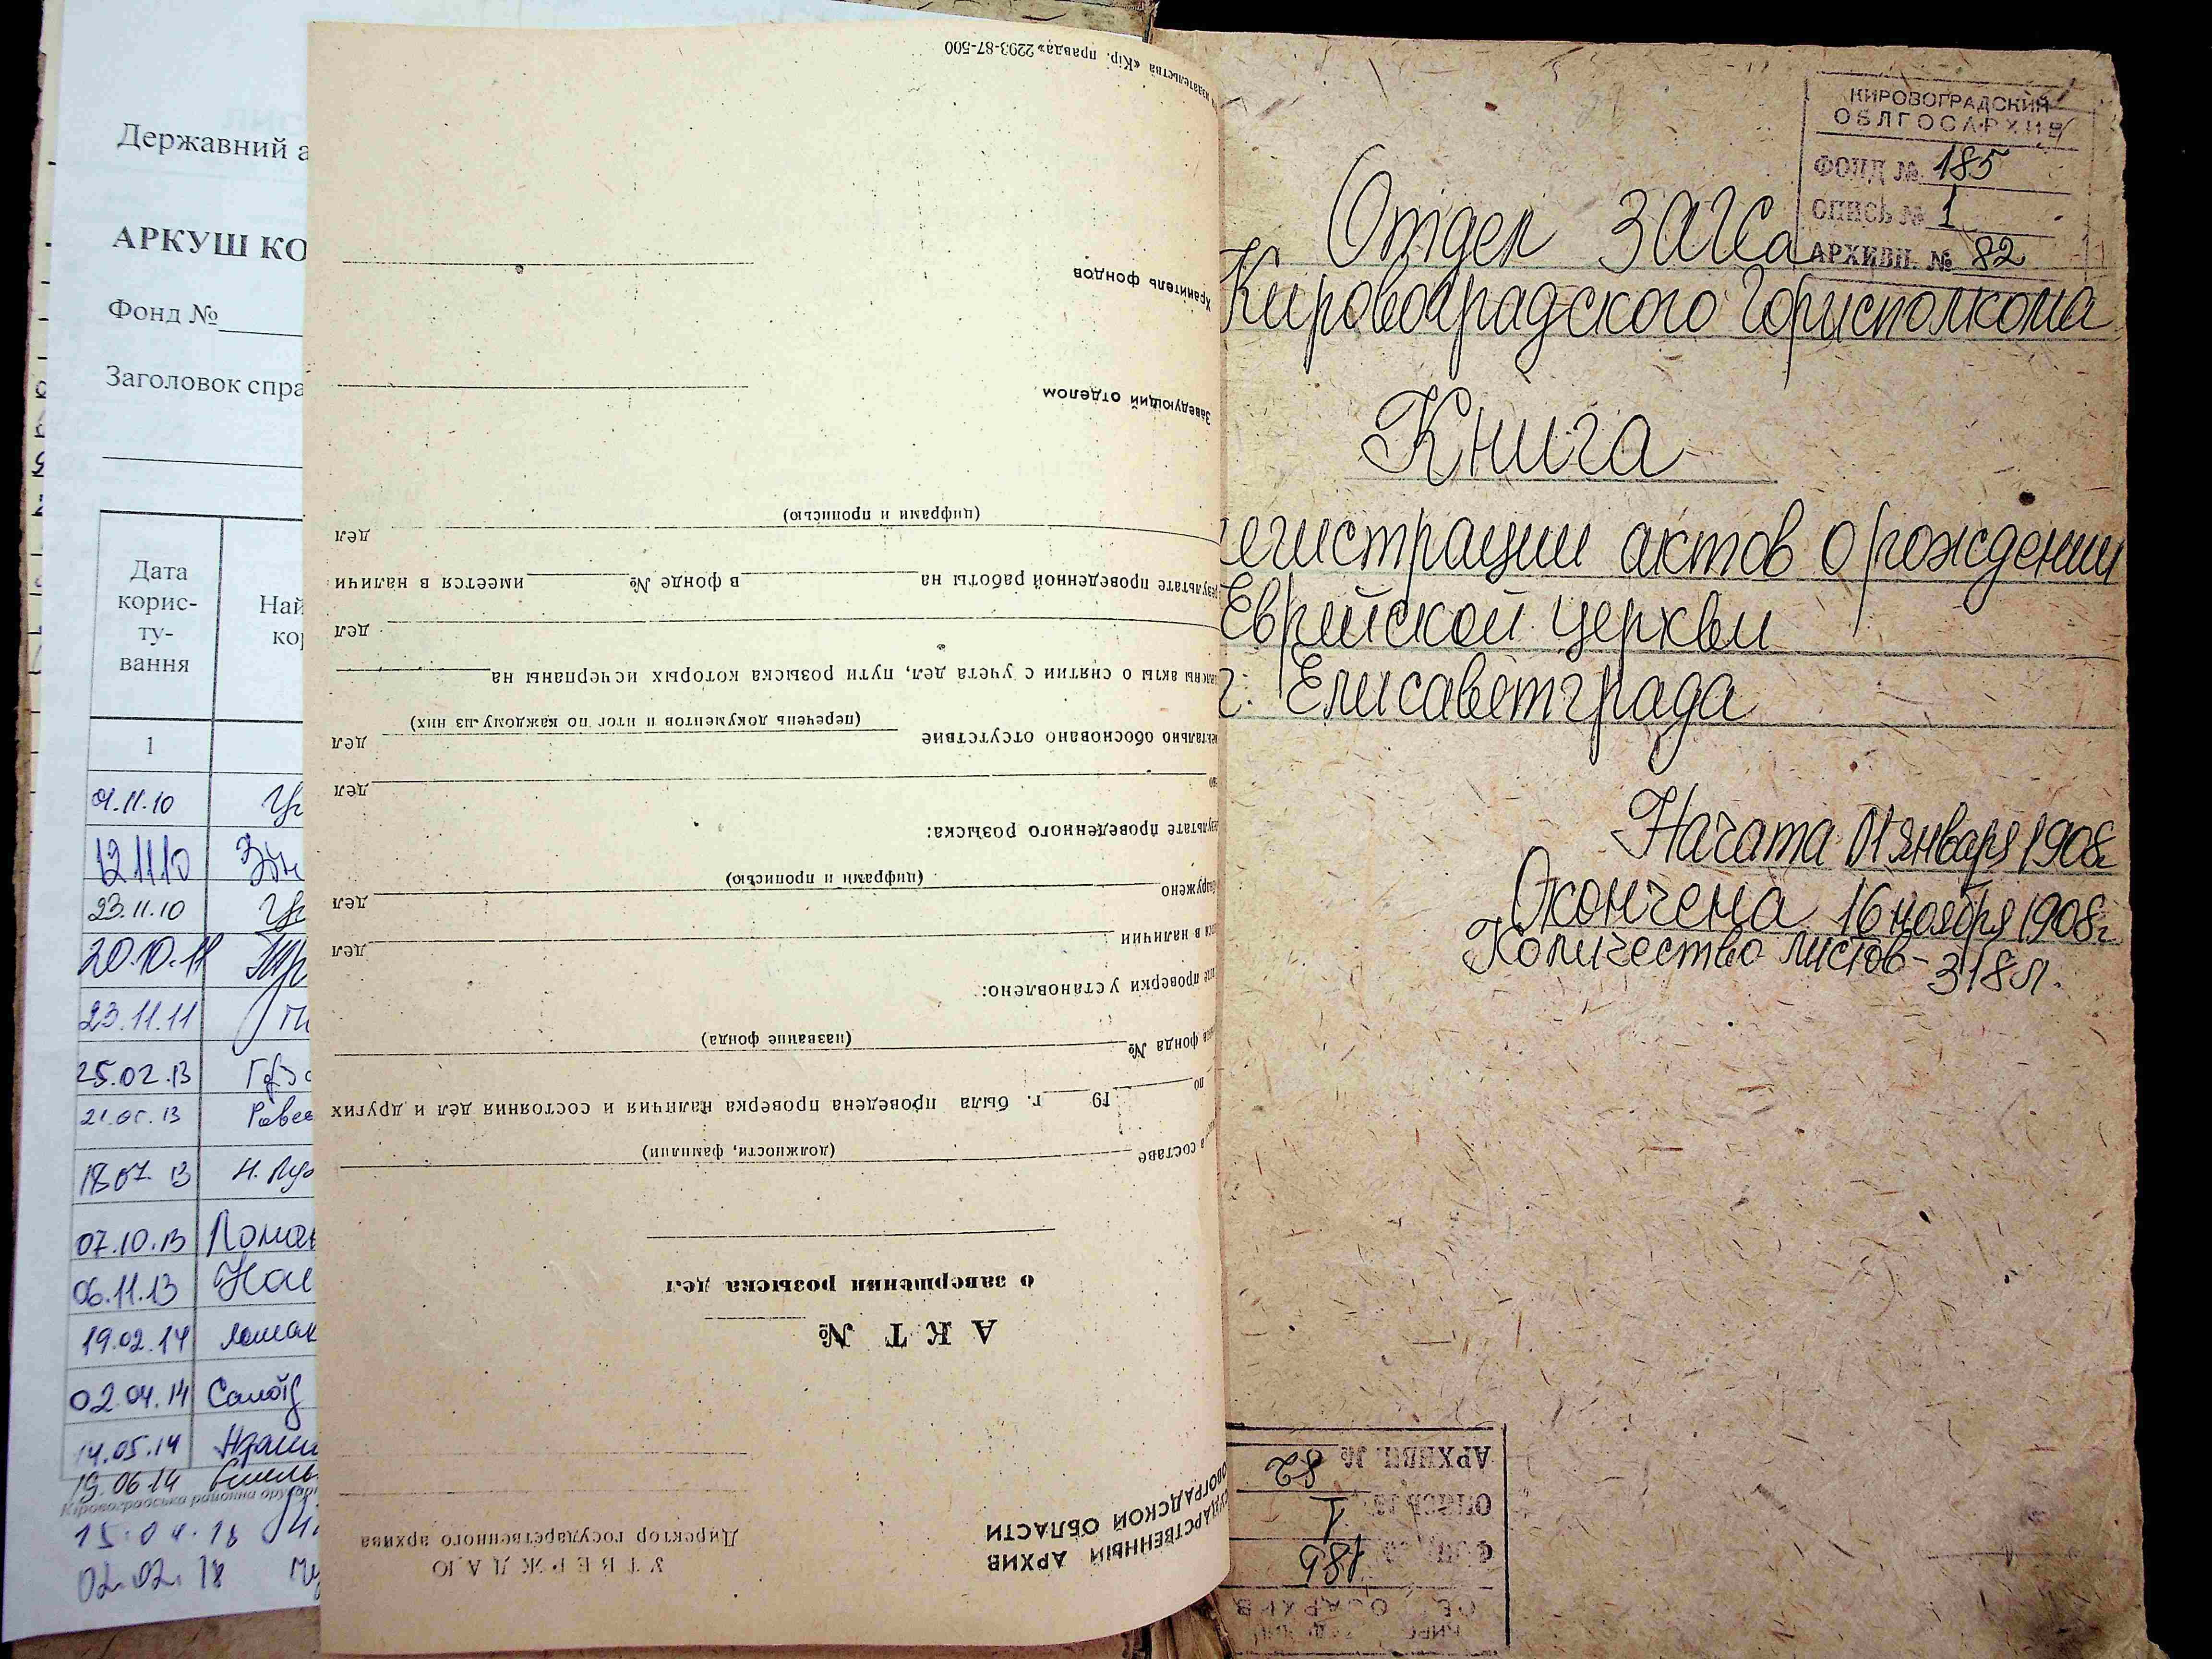 Державний а
АРКУШ КО
Фонд №
Заголовок спра
Дата
корис-
ту-
вання
Най
кор
1
12.11.10
23.11.10
23.11.11
25.02.13
18.07.13
07.10.13
Лома
06.11.13
19.02.14
02.04.14
14.05.14
19.06.14
Кіровоградська районна друкар
02.02.18
СУДАРСТВЕННЫЙ АРХИВ
ОВОГРАДСКОЙ ОБЛАСТИ
УТВЕРЖДАЮ
Директор государственного архива
АКТ №
о завершении розыска дел
в составе
(должности, фамилии)
по 19 г. была проведена проверка наличия и состояния дел и других
фонда №
(название фонда)
проверки установлено:
в наличии дел
дел
(цифрами и прописью)
ультате проведенного розыска:
дел
ентально обосновано отсутствие дел
(перечень документов и итог по каждому из них)
акты о снятии с учета дел, пути розыска которых исчерпаны на
дел
результате проведенной работы на в фонде № имеется в наличи
дел
(цифрами и прописью)
Заведующий отделом
Хранитель фондов
издательства «Кір. правда» 2293-87-500
КИРОВОГРАДСКИЙ
ОБЛГОСАРХИВ
ФОНД № 185
ОПИСЬ № 1
АРХИВН. № 82
Отдел ЗАГСа
Кировоградского Горисполкома
Книга
егистрации актов о рождении
Еврейской церкви
г. Елисаветграда
Начата 01 января 1908г
Окончена 16 ноября 1908г
Количество листов - 318 л.
ОСАРХИВ
ФОНД № 185
ОПИСЬ № 1
АРХИВН. № 82